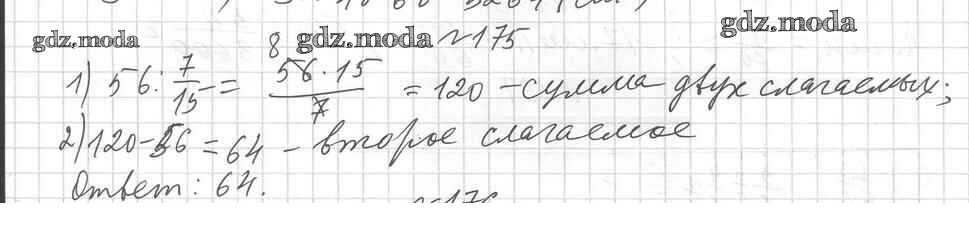 gdz.moda gdz.moda №175 gdz.moda
1) 56 : 7/15 = 56 · 15 / 7 = 120 – сумма двух слагаемых;
8
2) 120 – 56 = 64 – второе слагаемое
Ответ: 64.
№176